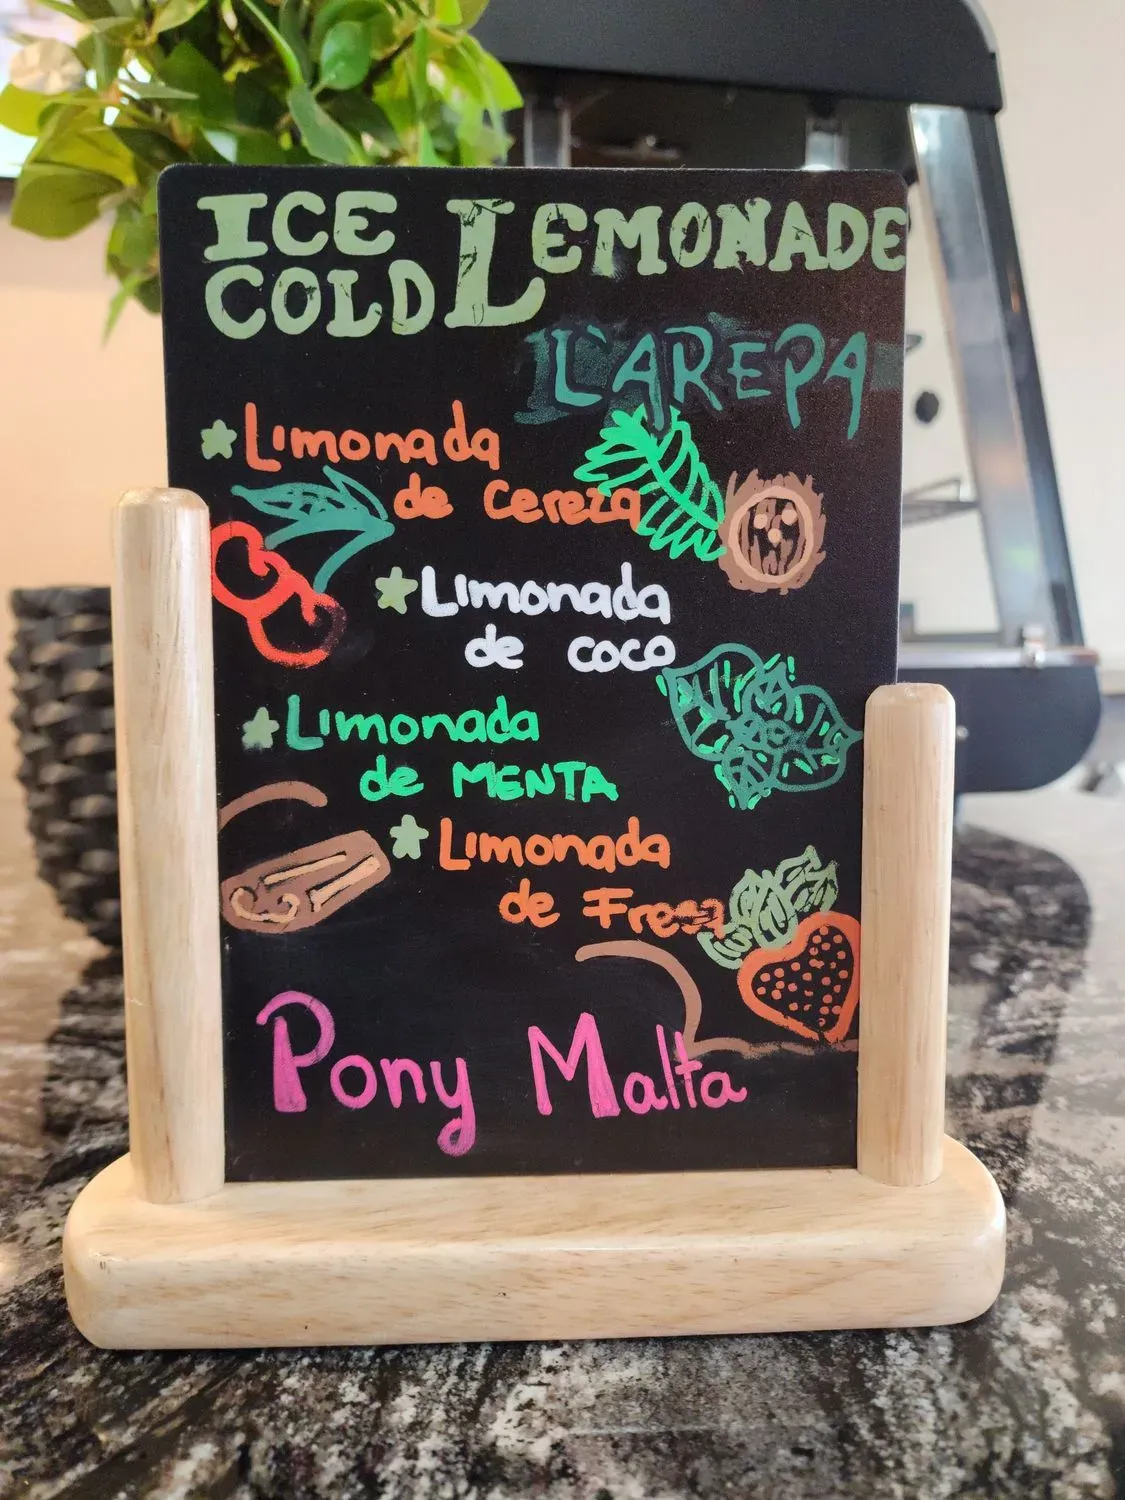 ICE
COLD LEMONADE
L'AREPA
Limonada
de Cereza
Limonada
de coco
Limonada
de MENTA
Limonada
de Fresa
Pony Malta